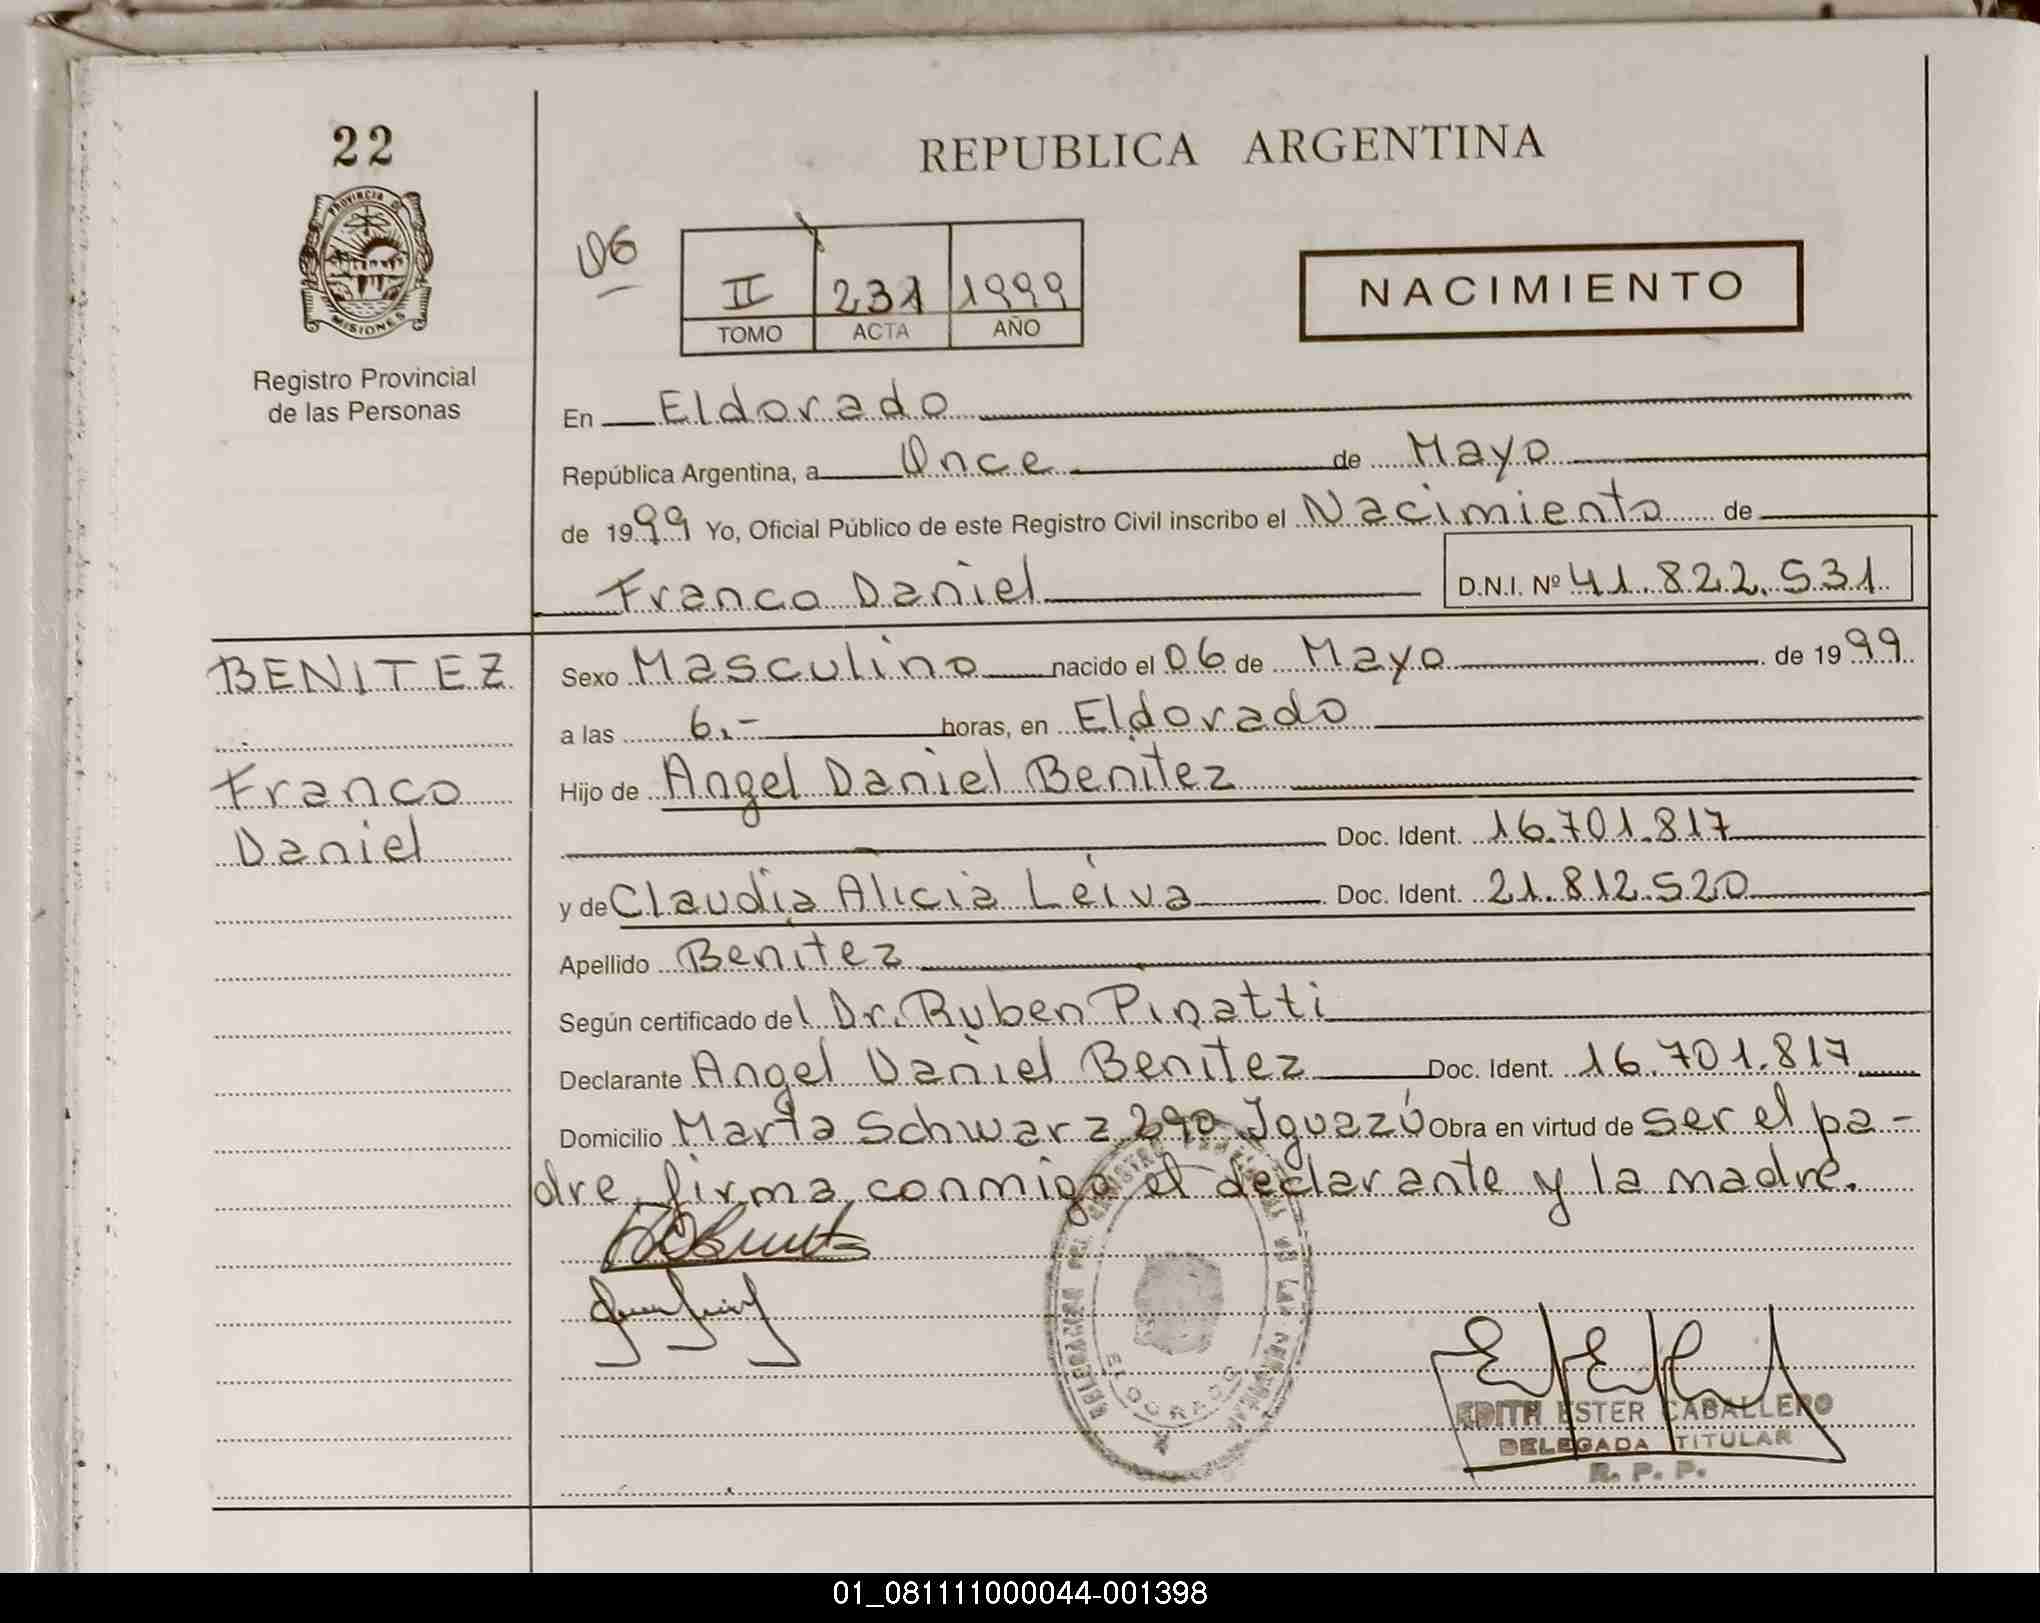 22
REPUBLICA ARGENTINA
PROVINCIA D
MISIONES
Registro Provincial
de las Personas
06
II 231 1999
TOMO ACTA AÑO
NACIMIENTO
En Eldorado
República Argentina, a Once de Mayo
de 1999 Yo, Oficial Público de este Registro Civil inscribo el Nacimiento de
Franco Daniel D.N.I. Nº 41.822.531
BENITEZ
Franco
Daniel
Sexo Masculino nacido el 06 de Mayo de 1999
a las 6.- horas, en Eldorado
Hijo de Angel Daniel Benitez
Doc. Ident. 16.701.817
y de Claudia Alicia Leiva Doc. Ident. 21.812.520
Apellido Benitez
Según certificado del Dr. Ruben Pinatti
Declarante Angel Daniel Benitez Doc. Ident. 16.701.817
Domicilio Marta Schwarz 290 Iguazú Obra en virtud de ser el pa-
dre, firma conmigo el declarante y la madre.
ELDORADO
EDITH ESTER CABALLERO
DELEGADA TITULAR
R. P. P.
01_081111000044-001398